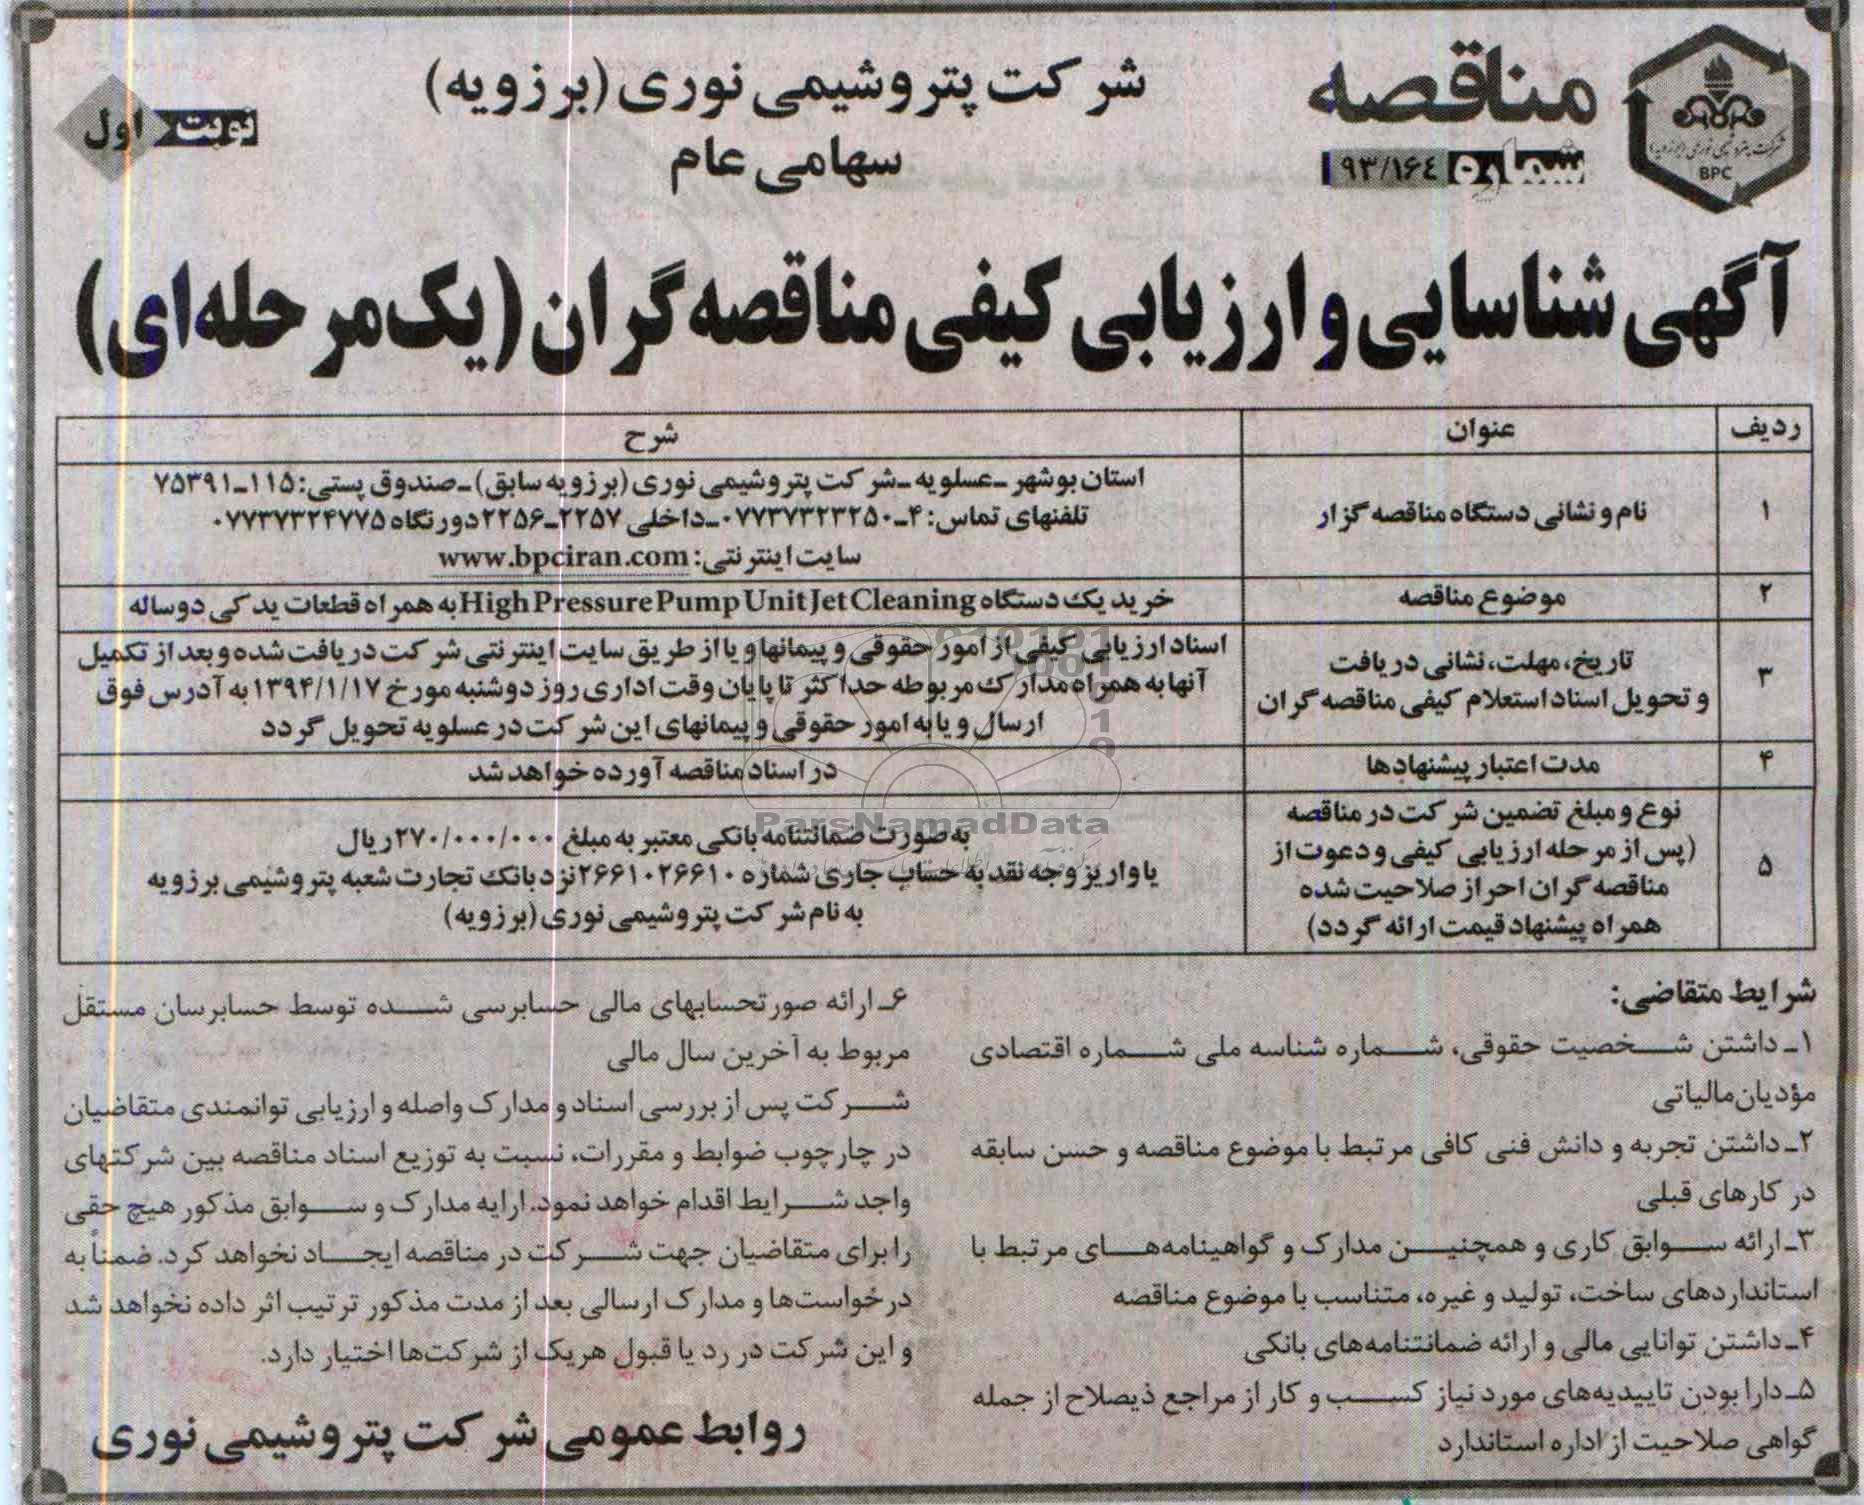 شرکت پتروشیمی نوری (برزویه)
BPC
مناقصه
شماره ۹۳/۱۶۴
شرکت پتروشیمی نوری (برزویه)
سهامی عام
نوبت اول
آگهی شناسایی و ارزیابی کیفی مناقصه‌گران (یک‌مرحله‌ای)
ردیف عنوان شرح
۱ نام و نشانی دستگاه مناقصه گزار
استان بوشهر ـ عسلویه ـ شرکت پتروشیمی نوری (برزویه سابق) ـ صندوق پستی: ۱۱۵ـ۷۵۳۹۱
تلفنهای تماس: ۴ـ۰۷۷۳۷۳۲۳۲۵۰ـداخلی ۲۲۵۷ـ۲۲۵۶دورنگاه ۰۷۷۳۷۳۲۴۷۷۵
سایت اینترنتی: www.bpciran.com
۲ موضوع مناقصه
خرید یک دستگاه High Pressure Pump Unit Jet Cleaning به همراه قطعات یدکی دوساله
۳ تاریخ، مهلت، نشانی دریافت
و تحویل اسناد استعلام کیفی مناقصه گران
اسناد ارزیابی کیفی از امور حقوقی و پیمانها و یا از طریق سایت اینترنتی شرکت دریافت شده و بعد از تکمیل
آنها به همراه مدارک مربوطه حداکثر تا پایان وقت اداری روز دوشنبه مورخ ۱۳۹۴/۱/۱۷ به آدرس فوق
ارسال و یا به امور حقوقی و پیمانهای این شرکت در عسلویه تحویل گردد
۴ مدت اعتبار پیشنهادها
در اسناد مناقصه آورده خواهد شد
۵ نوع و مبلغ تضمین شرکت در مناقصه
(پس از مرحله ارزیابی کیفی و دعوت از
مناقصه گران احراز صلاحیت شده
همراه پیشنهاد قیمت ارائه گردد)
به صورت ضمانتنامه بانکی معتبر به مبلغ ۲۷۰/۰۰۰/۰۰۰ریال
یا واریز وجه نقد به حساب جاری شماره ۲۶۶۱۰۲۶۶۱۰نزد بانک تجارت شعبه پتروشیمی برزویه
به نام شرکت پتروشیمی نوری (برزویه)
ParsNamadData
شرایط متقاضی:
۱ـ داشتن شخصیت حقوقی، شماره شناسه ملی شماره اقتصادی
مؤدیان مالیاتی
۲ـ داشتن تجربه و دانش فنی کافی مرتبط با موضوع مناقصه و حسن سابقه
در کارهای قبلی
۳ـ ارائه سوابق کاری و همچنین مدارک و گواهینامه‌های مرتبط با
استانداردهای ساخت، تولید و غیره، متناسب با موضوع مناقصه
۴ـ داشتن توانایی مالی و ارائه ضمانتنامه‌های بانکی
۵ـ دارا بودن تاییدیه‌های مورد نیاز کسب و کار از مراجع ذیصلاح از جمله
گواهی صلاحیت از اداره استاندارد
۶ـ ارائه صورتحسابهای مالی حسابرسی شده توسط حسابرسان مستقل
مربوط به آخرین سال مالی
شرکت پس از بررسی اسناد و مدارک واصله و ارزیابی توانمندی متقاضیان
در چارچوب ضوابط و مقررات، نسبت به توزیع اسناد مناقصه بین شرکتهای
واجد شرایط اقدام خواهد نمود. ارایه مدارک و سوابق مذکور هیچ حقی
را برای متقاضیان جهت شرکت در مناقصه ایجاد نخواهد کرد. ضمناً به
درخواست‌ها و مدارک ارسالی بعد از مدت مذکور ترتیب اثر داده نخواهد شد
و این شرکت در رد یا قبول هریک از شرکت‌ها اختیار دارد.
روابط عمومی شرکت پتروشیمی نوری